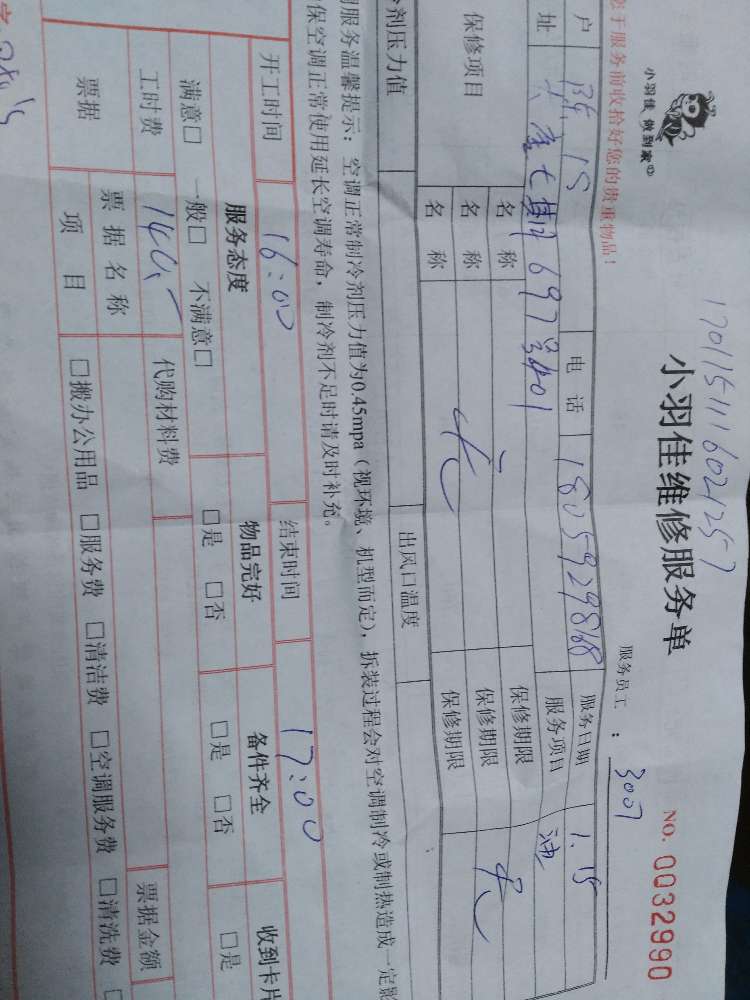 1701151116021257
小羽佳 做到家
小羽佳维修服务单
NO. 0032990
服务员工： 3007
于服务前收拾好您的贵重物品！
户 电话 18059298168 服务日期 1.15
址 697号401 服务项目
保修项目 名称 保修期限
名称 无 保修期限 无
名称 保修期限
剂压力值 出风口温度
服务温馨提示：空调正常制冷剂压力值为0.45mpa（视环境、机型而定），拆装过程会对空调制冷或制热造成一定影
保空调正常使用延长空调寿命，制冷剂不足时请及时补充。
开工时间 16:00 结束时间 17:00
服务态度 物品完好 备件齐全 收到卡片
满意□ 一般□ 不满意□ □是 □否 □是 □否 □是
工时费 140,- 代购材料费
票据 票据名称 票据金额
项目 □搬办公用品 □服务费 □清洁费 □空调服务费 □清洗费 □